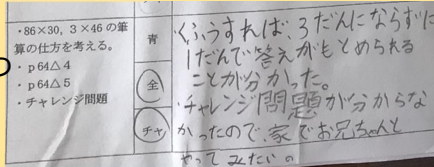 ・86×30, 3×46の筆
算の仕方を考える。
・p64△4
・p64△5
・チャレンジ問題
青
全
チャ
くふうすれば、3だんにならずに
1だんで答えがもとめられる
ことが分かった。
・チャレンジ問題が分からな
かったので、家でお兄ちゃんと
やってみたい。